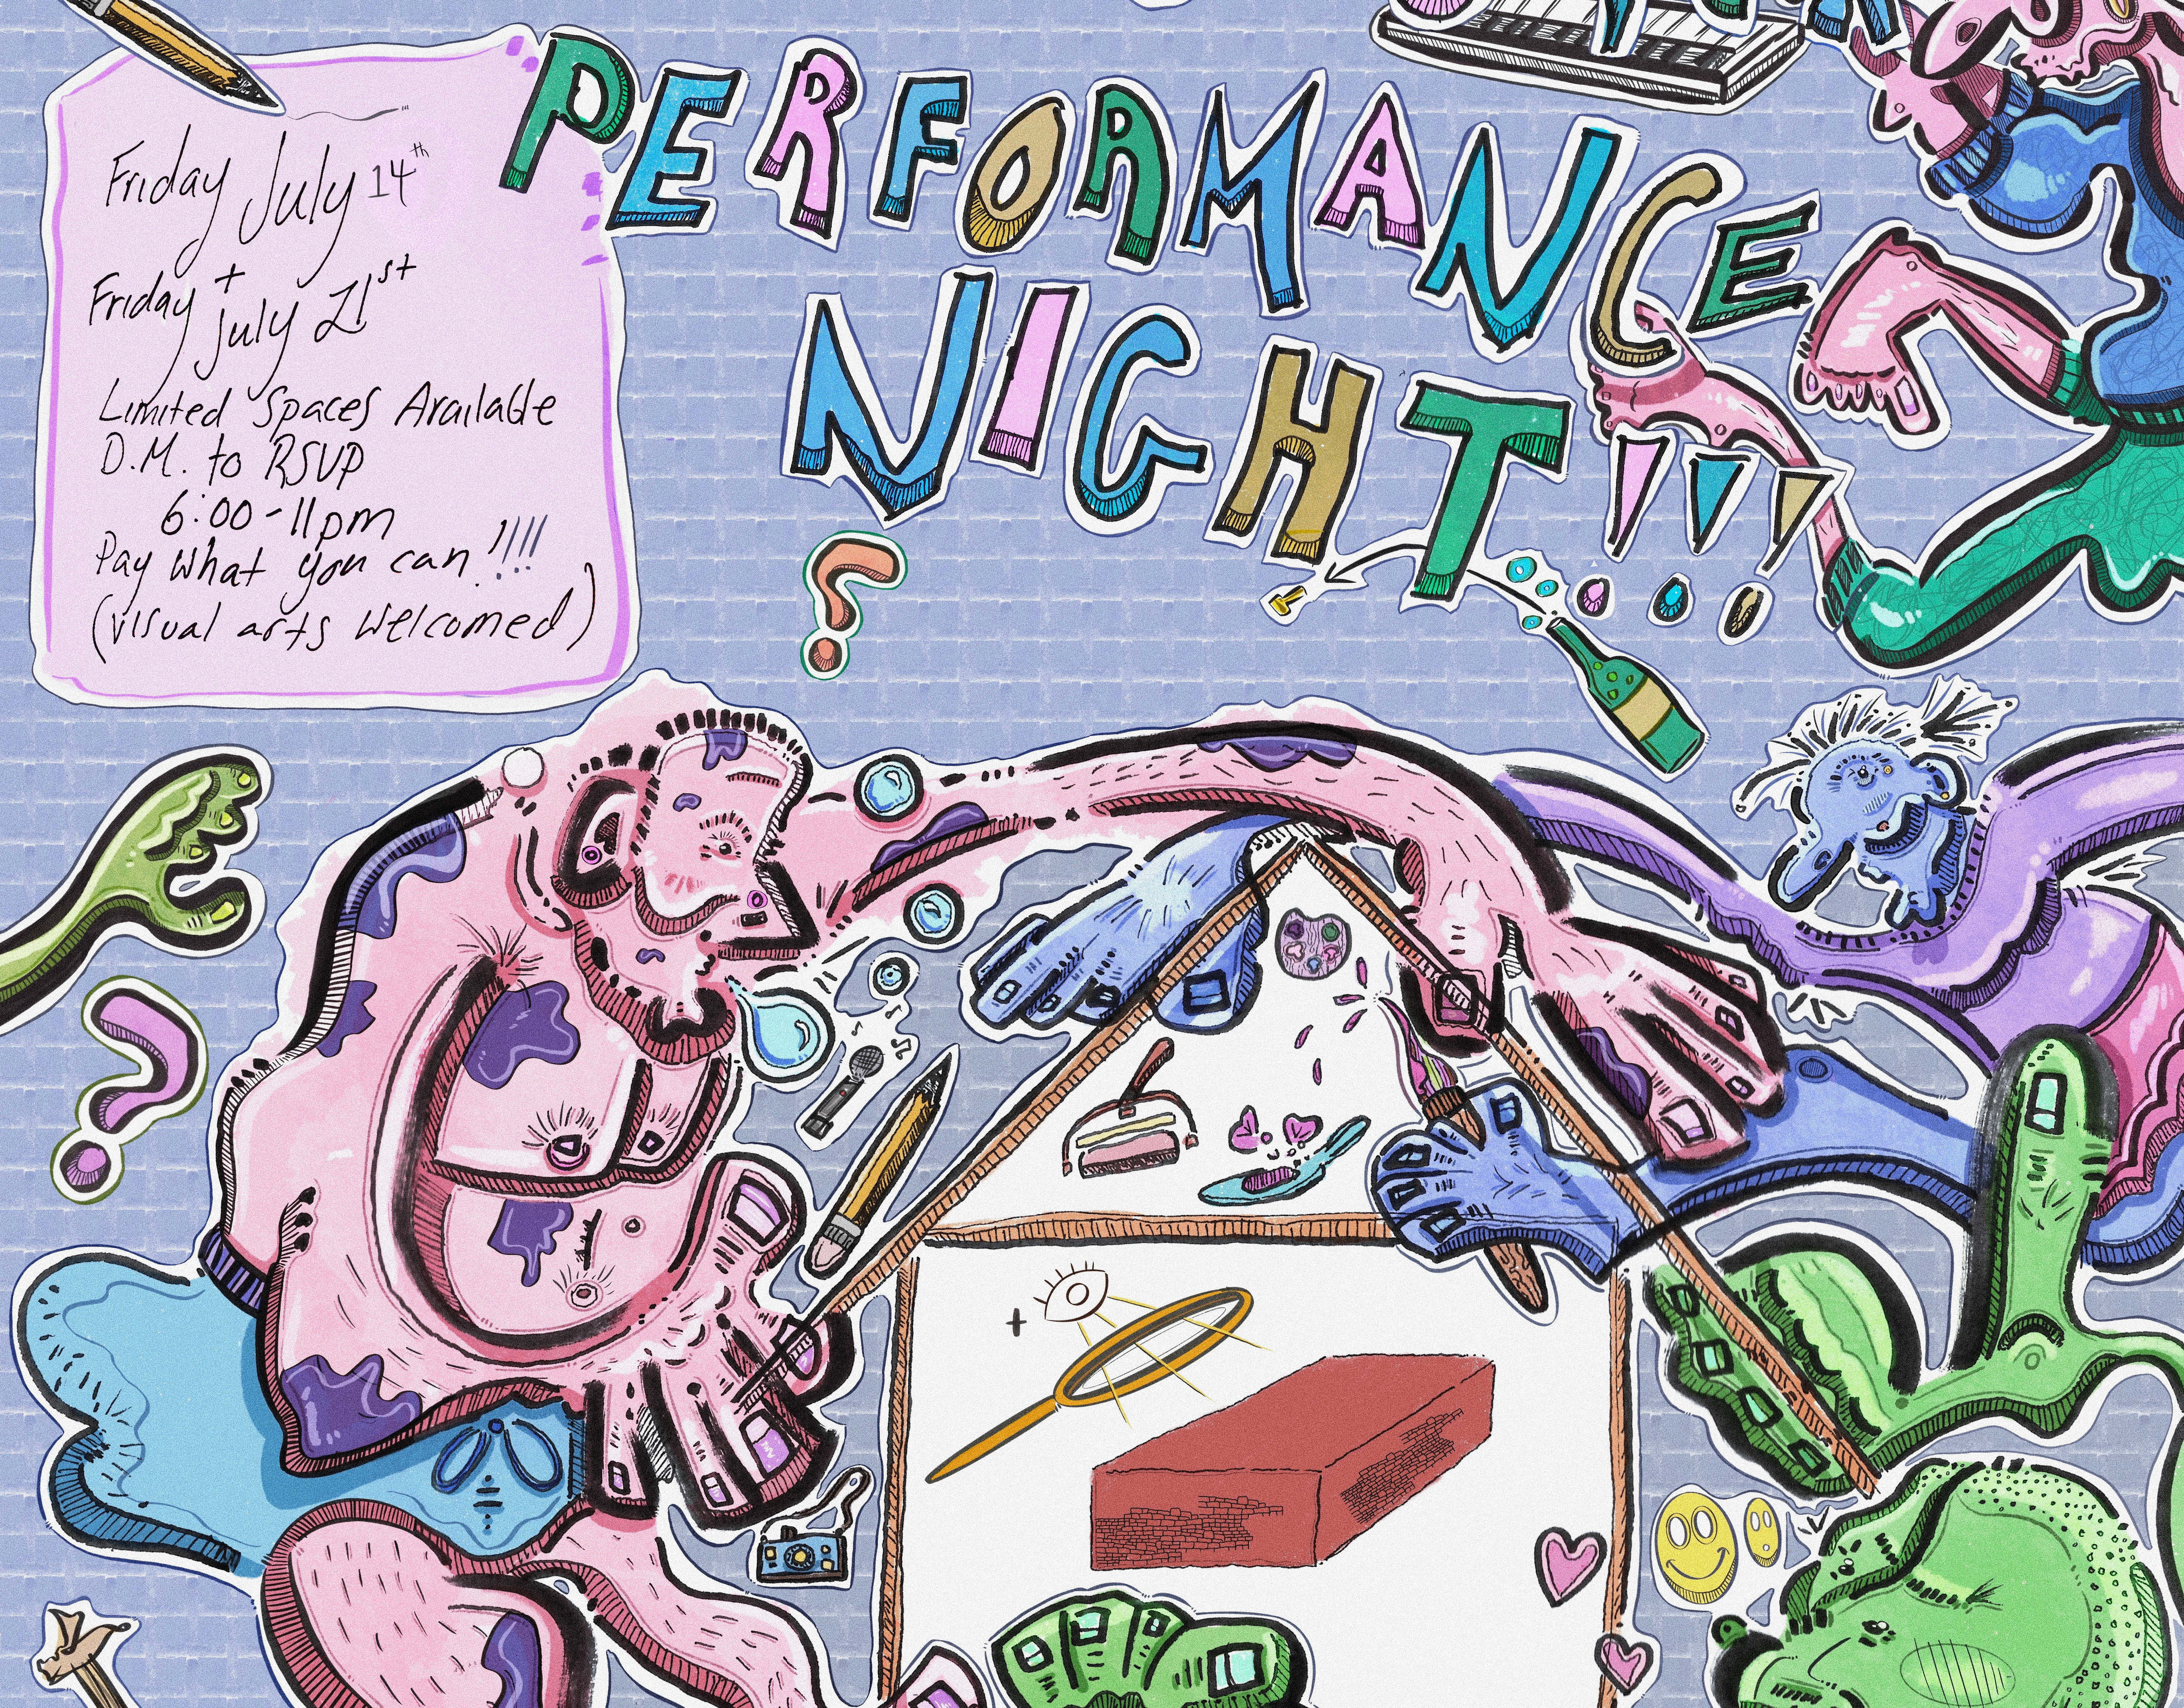 Friday July 14th
+
Friday July 21st
Limited Spaces Available
D.M. to RSVP
6:00-11pm
Pay what you can!!!!!
(visual arts welcomed)
PERFORMANCE
NIGHT!!!
?
?
+